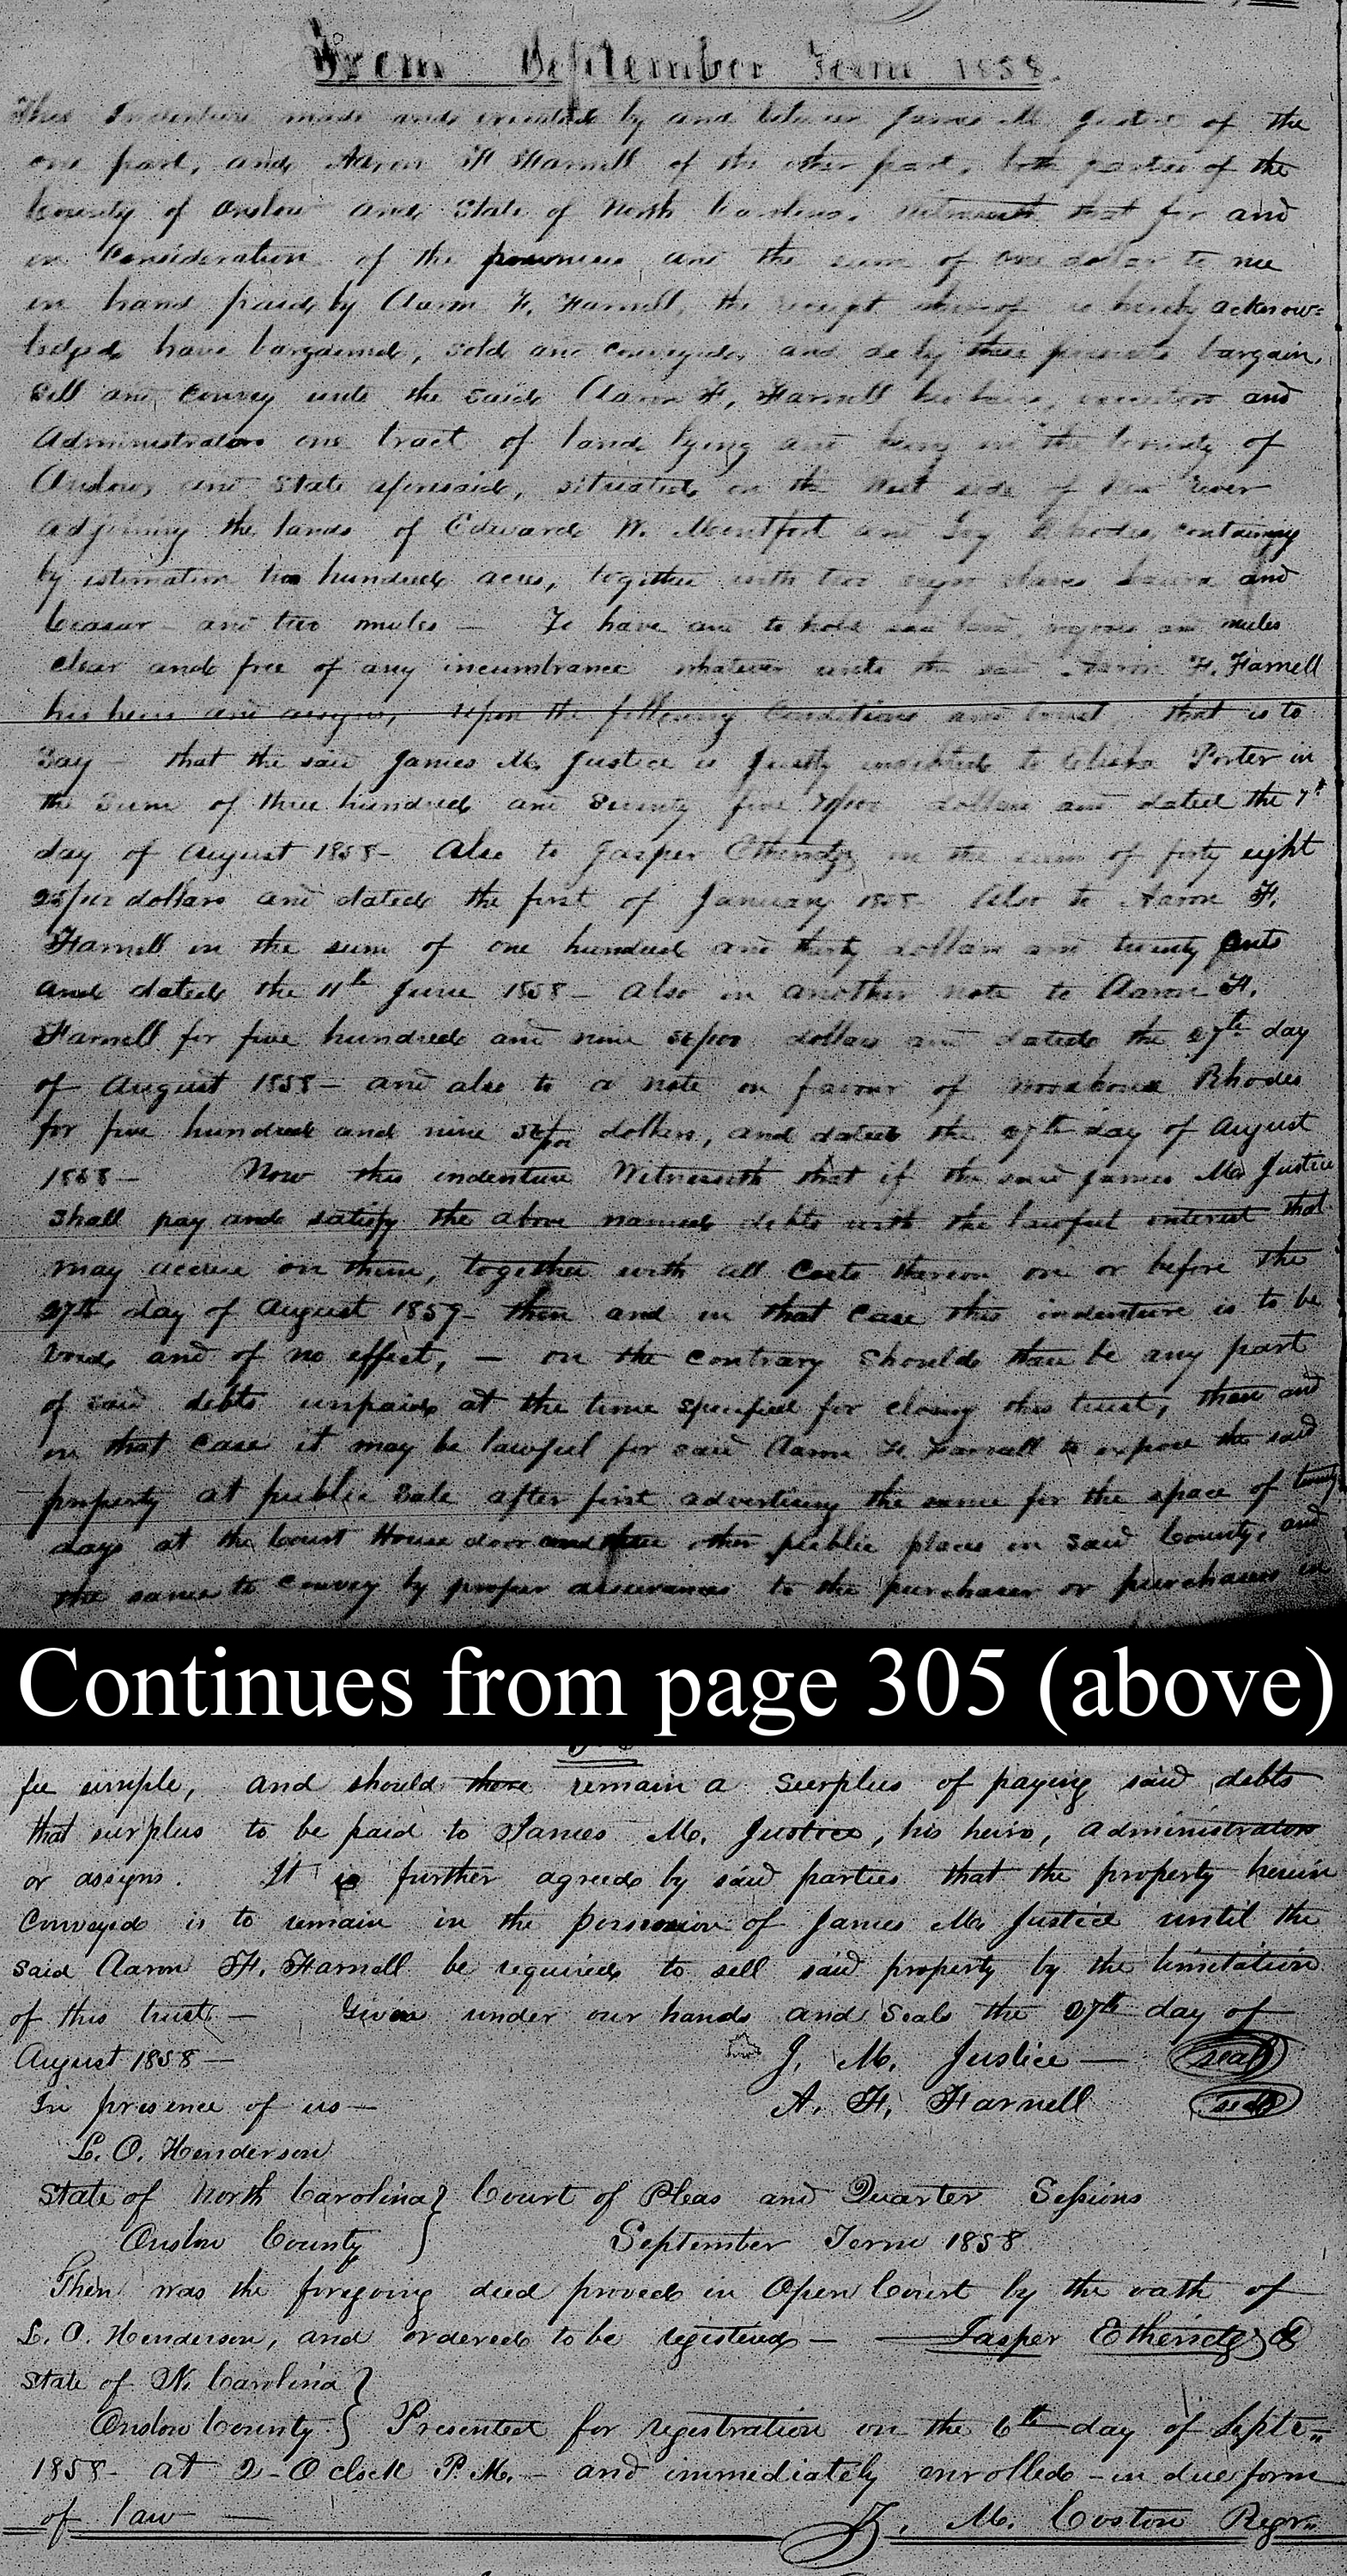 From September Term 1858.
This Indenture made and executed by and between James M. Justice of the
one part, and Aaron F. Farnell of the other part, both parties of the
County of Onslow and State of North Carolina. Witnesseth that for and
in Consideration of the premises and the sum of one dollar to me
in hand paid by Aaron F. Farnell, the receipt whereof is hereby acknow=
ledged have bargained, sold and conveyed, and do by these presents bargain,
Sell and Convey unto the said Aaron F. Farnell his heirs, executors and
Administrators one tract of land lying and being in the County of
Onslow and State aforesaid, situated on the West side of New River
adjoining the lands of Edward W. Montfort and Rhodes, containing
by estimation two hundred acres, together with two negro slaves and
and two mules — To have and to hold said land, negroes and mules
clear and free of any incumbrance whatever unto the said Aaron F. Farnell
his heirs and assigns, upon the following Conditions and trust that is to
Say — that the said James M. Justice is justly indebted to Elisha Porter in
the Sum of three hundred and Seventy five /100 dollars and dated the 7th
day of August 1858 - Also to Jasper Etheridge in the sum of forty eight
25/100 dollars and dated the first of January 1858 Also to Aaron F.
Farnell in the sum of one hundred and thirty dollars and twenty cents
and dated the 11th June 1858 - also in another note to Aaron F.
Farnell for five hundred and nine 56/100 dollars and dated the 27th day
of August 1858 - and also to a note in favour of Rhodes
for five hundred and nine 56/100 dollars, and dated the 27th day of August
1858 - Now this indenture Witnesseth that if the said James M. Justice
Shall pay and satisfy the above named debts with the lawful interest that
may accrue on them, together with all Costs thereon on or before the
27th day of August 1859 - then and in that Case this indenture is to be
Void, and of no effect, - on the contrary Should there be any part
of said debts unpaid at the time specified for closing this trust, then and
in that Case it may be lawful for said Aaron F. Farnell to expose the said
property at public Sale after first advertising the same for the space of twenty
days at the Court House door and three other public places in said County, and
the same to Convey by proper assurances to the purchaser or purchasers in
Continues from page 305 (above)
fee simple, and should there remain a Surplus of paying said debts
that surplus to be paid to James M. Justice, his heirs, administrators
or assigns. It is further agreed by said parties that the property herein
Conveyed is to remain in the possession of James M. Justice until the
said Aaron F. Farnell be required to sell said property by the limitation
of this trust - Given under our hands and Seals the 27th day of
August 1858 — J. M. Justice — seal
In presence of us — A. F. Farnell seal
L. O. Henderson
State of North Carolina } Court of Pleas and Quarter Sessions
Onslow County } September Term 1858
Then was the foregoing deed proved in Open Court by the oath of
L. O. Henderson, and ordered to be registered — Jasper Etheridge
State of N. Carolina }
Onslow County } Presented for registration on the 6th day of Septr
1858 - at 2 - O clock P. M. - and immediately enrolled - in due form
of law — M. Coston Regr